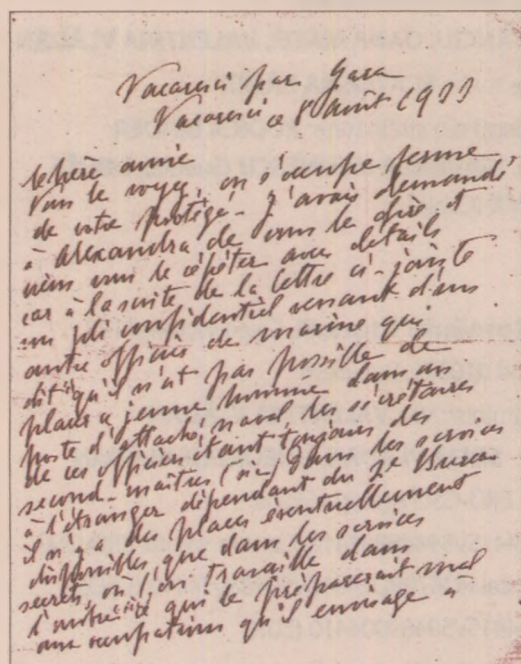 Vacaresci par Gara
Vacaresci ce 8 août 1933
chère amie
Vous le voyez, on s'occupe ferme
de votre protégé. J'avais demandé
à Alexandra de vous le dire, et
viens vous le répéter avec détails
car à la suite de la lettre ci-jointe
un pli confidentiel venant d'un
autre officier de marine que
dit qu'il n'est pas possible de
placer ce jeune homme dans un
poste d'attaché naval les secrétaires
de ces officiers étant toujours des
second-maîtres (sic) dans les services
à l'étranger dépendant du 2e Bureau
il n'y a des places éventuellement
disponibles que dans les services
secrets où l'on travaille dans
l'obscurité qui le préparerait mal
aux occupations qu'il envisage